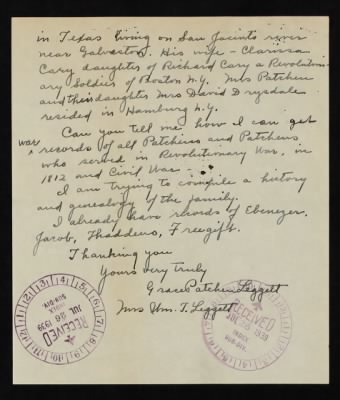 in Texas living on San Jacinto river
near Galveston. His wife - Clarissa
Cary, daughter of Richard Cary a Revolution-
ary Soldier of Boston N.Y. Mrs Patchin
and their daughter Mrs David Drysdale
resided in Hamburg N.Y.
Can you tell me how I can get
war records of all Patchens and Patchins
who served in Revolutionary War, in
1812 and Civil War -
I am trying to compile a history
and genealogy of the family.
I already have records of Ebenezer,
Jacob, Thaddeus, Freegift.
Thanking you
Yours very truly
Grace Patchen Leggett
Mrs Wm. T. Leggett
RECEIVED
JUL 26 1939
INDEX
SUB-DIV.
RECEIVED
JUL 26 1939
INDEX
SUB-DIV.